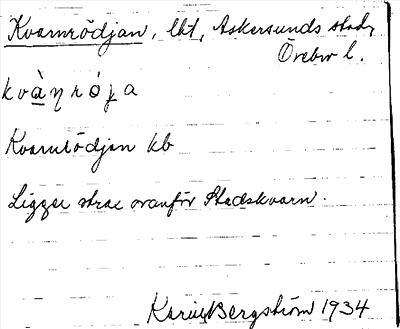 Kvarnrödjan, lht, Askersunds stad,
Örebro l.
kvàṇrója
Kvarnrödjan kb
Ligger strax ovanför Stadskvarn.
Bergström 1934